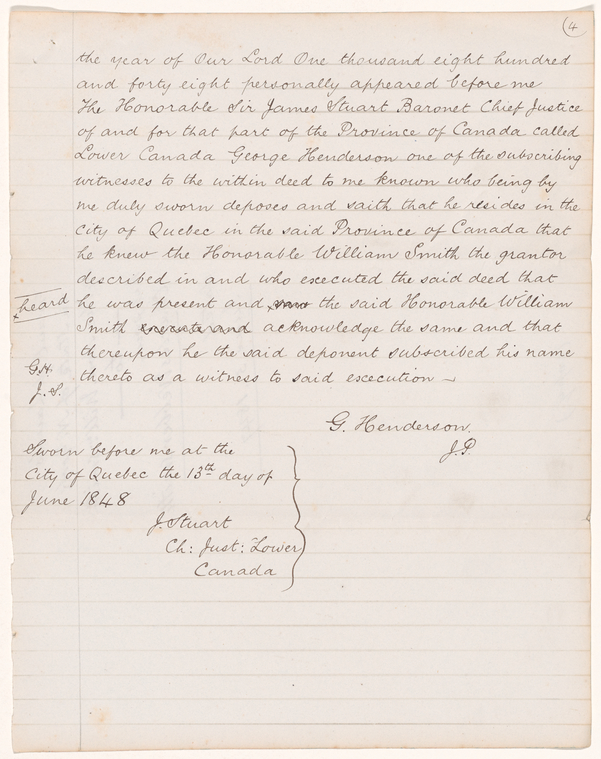 4
the year of Our Lord One thousand eight hundred
and forty eight personally appeared before me
The Honorable Sir James Stuart Baronet Chief Justice
of and for that part of the Province of Canada called
Lower Canada George Henderson one of the subscribing
witnesses to the within deed to me known who being by
me duly sworn deposes and saith that he resides in the
City of Quebec in the said Province of Canada that
he knew the Honorable William Smith the grantor
described in and who executed the said deed that
heard
he was present and saw the said Honorable William
Smith execute and acknowledge the same and that
thereupon he the said deponent subscribed his name
G.H.
J.S.
thereto as a witness to said execution —
G. Henderson.
J.P.
Sworn before me at the
City of Quebec the 13th day of
June 1848
J. Stuart
Ch: Just: Lower
Canada